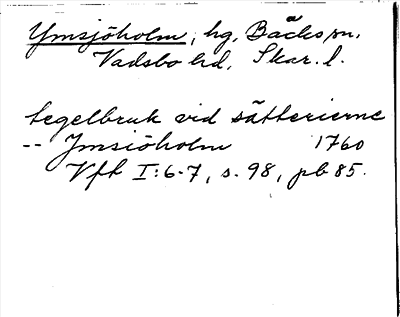 Ymsjöholm, hg, Bäcks sn,
Vadsbo hd, Skar. l.
tegelbruk vid sätterierne
-- Jmsiöholm 1760
Vft I:6-7, s. 98, pb 85.